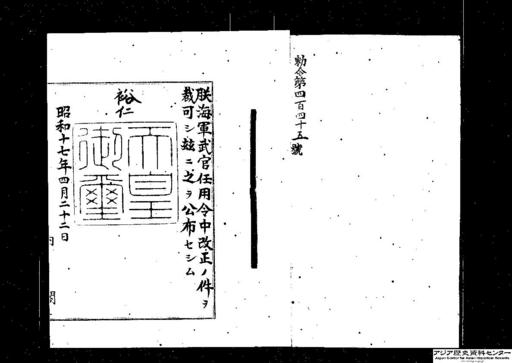 勅令第四百四十五號
朕海軍武官任用令中改正ノ件ヲ
裁可シ玆ニ之ヲ公布セシム
裕仁
天皇
御璽
昭和十七年四月二十二日
内閣
アジア歴史資料センター
Japan Center for Asian Historical Records